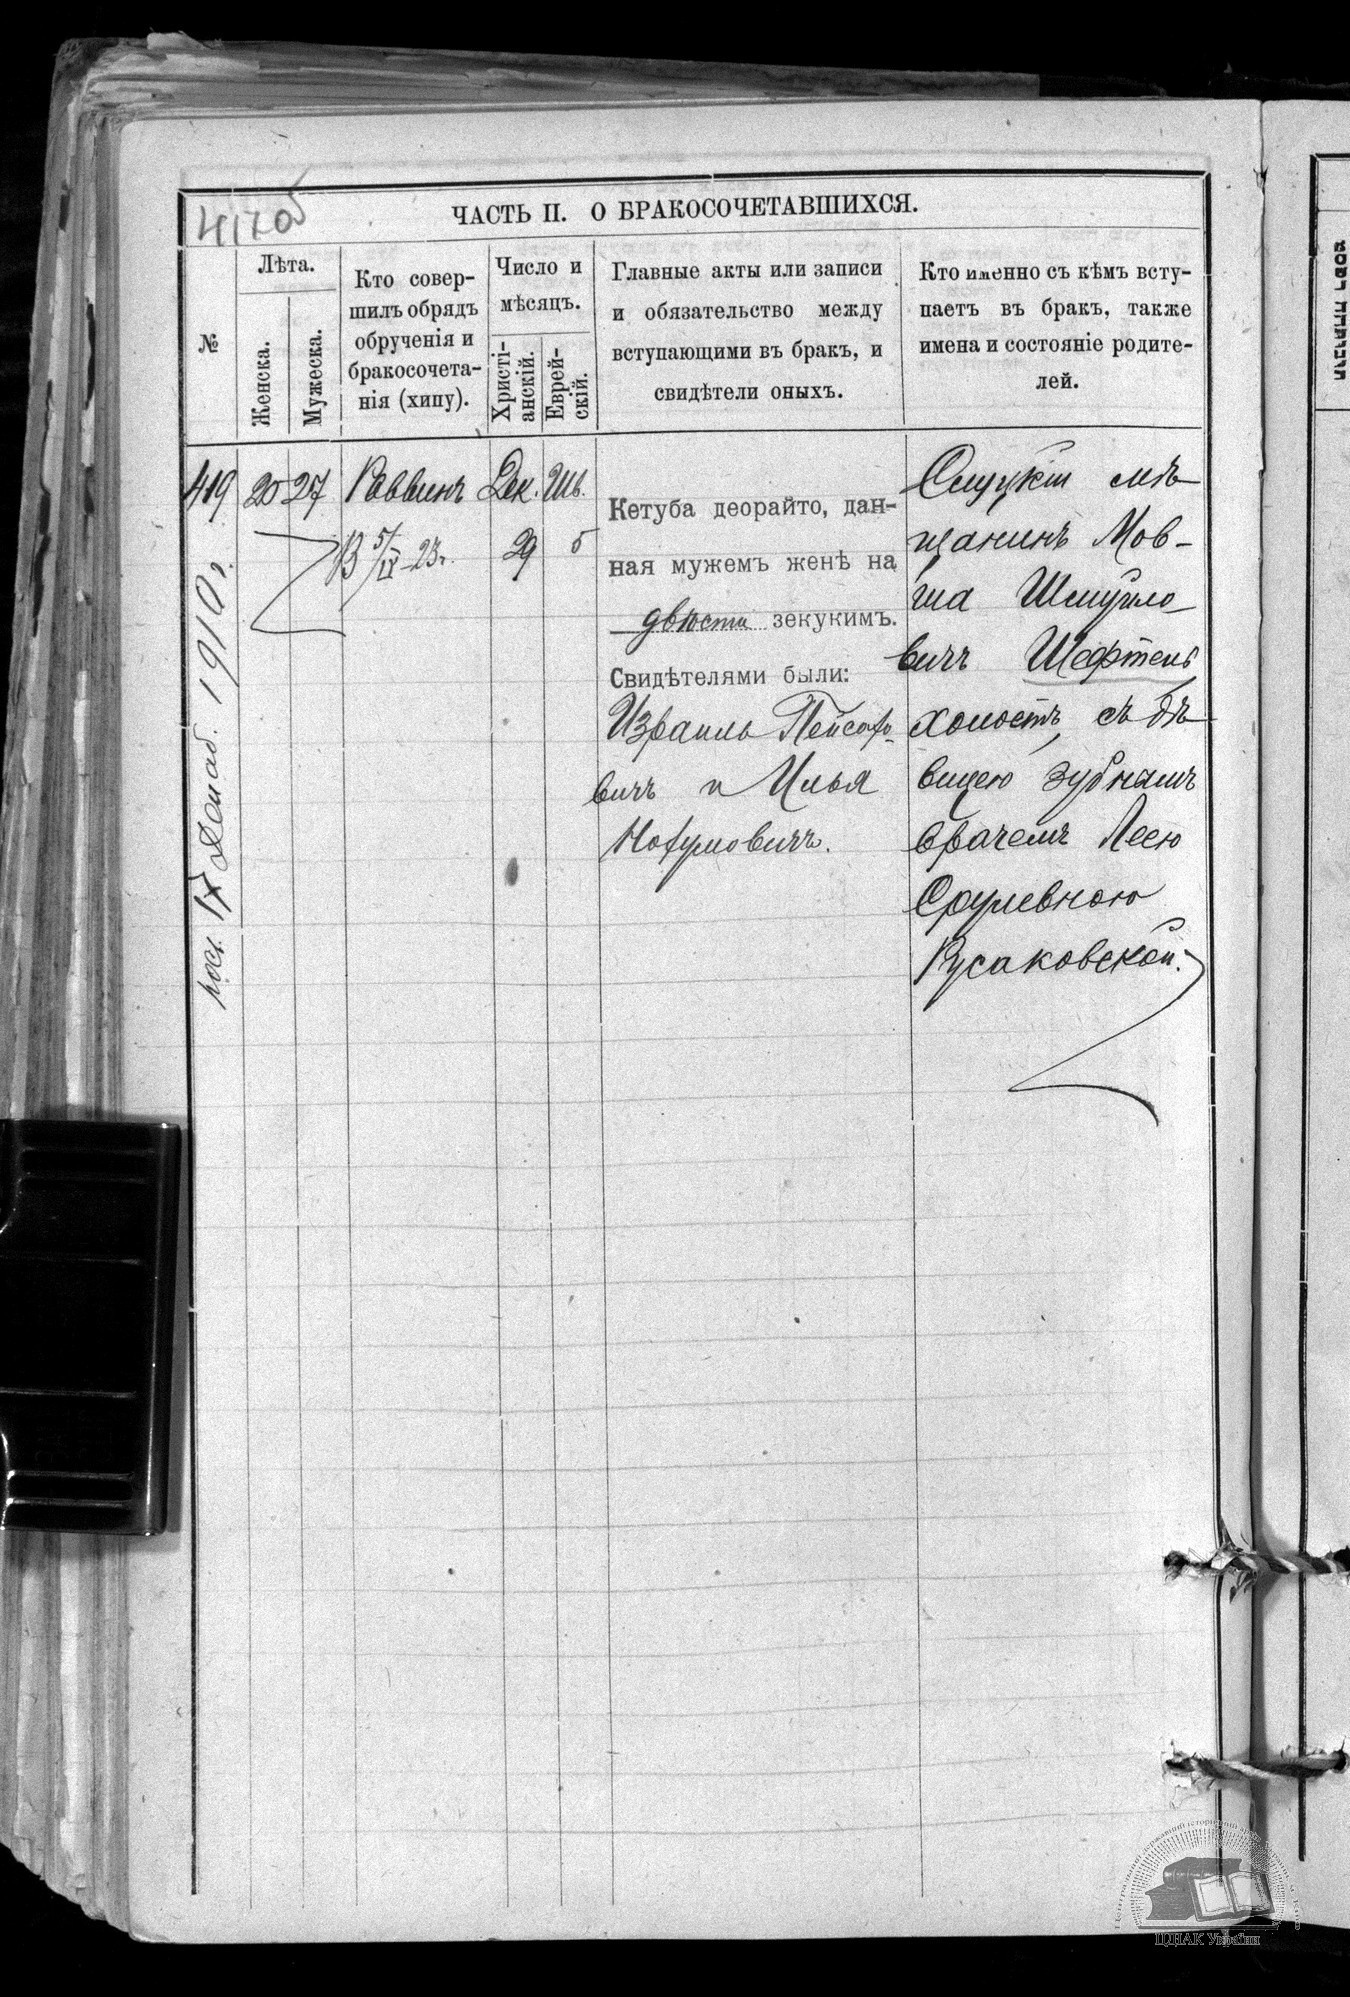 417об
ЧАСТЬ II. О БРАКОСОЧЕТАВШИХСЯ.
№
Лѣта.
Женска.
Мужеска.
Кто совер-
шилъ обрядъ
обрученія и
бракосочета-
нія (хипу).
Число и
мѣсяцъ.
Христі-
анскій.
Еврей-
скій.
Главные акты или записи
и обязательство между
вступающими въ бракъ, и
свидѣтели оныхъ.
Кто именно съ кѣмъ всту-
паетъ въ бракъ, также
имена и состояніе родите-
лей.
419
20
27
Раввинъ
В 5/IX-23г.
Дек.
29
Шв.
5
Кетуба деорайто, дан-
ная мужемъ женѣ на
двѣсти зекукимъ.
Свидѣтелями были:
Израиль Пейсахо-
вичъ и Илья
Нохумовичъ.
Слуцкій мѣ-
щанинъ Мов-
ша Шмуйло-
вичъ Шефтель
холостъ, съ дѣ-
вицею зубнымъ
врачемъ Леею
Срулевною
Русаковской.
1910 г.
ЦДІАК України